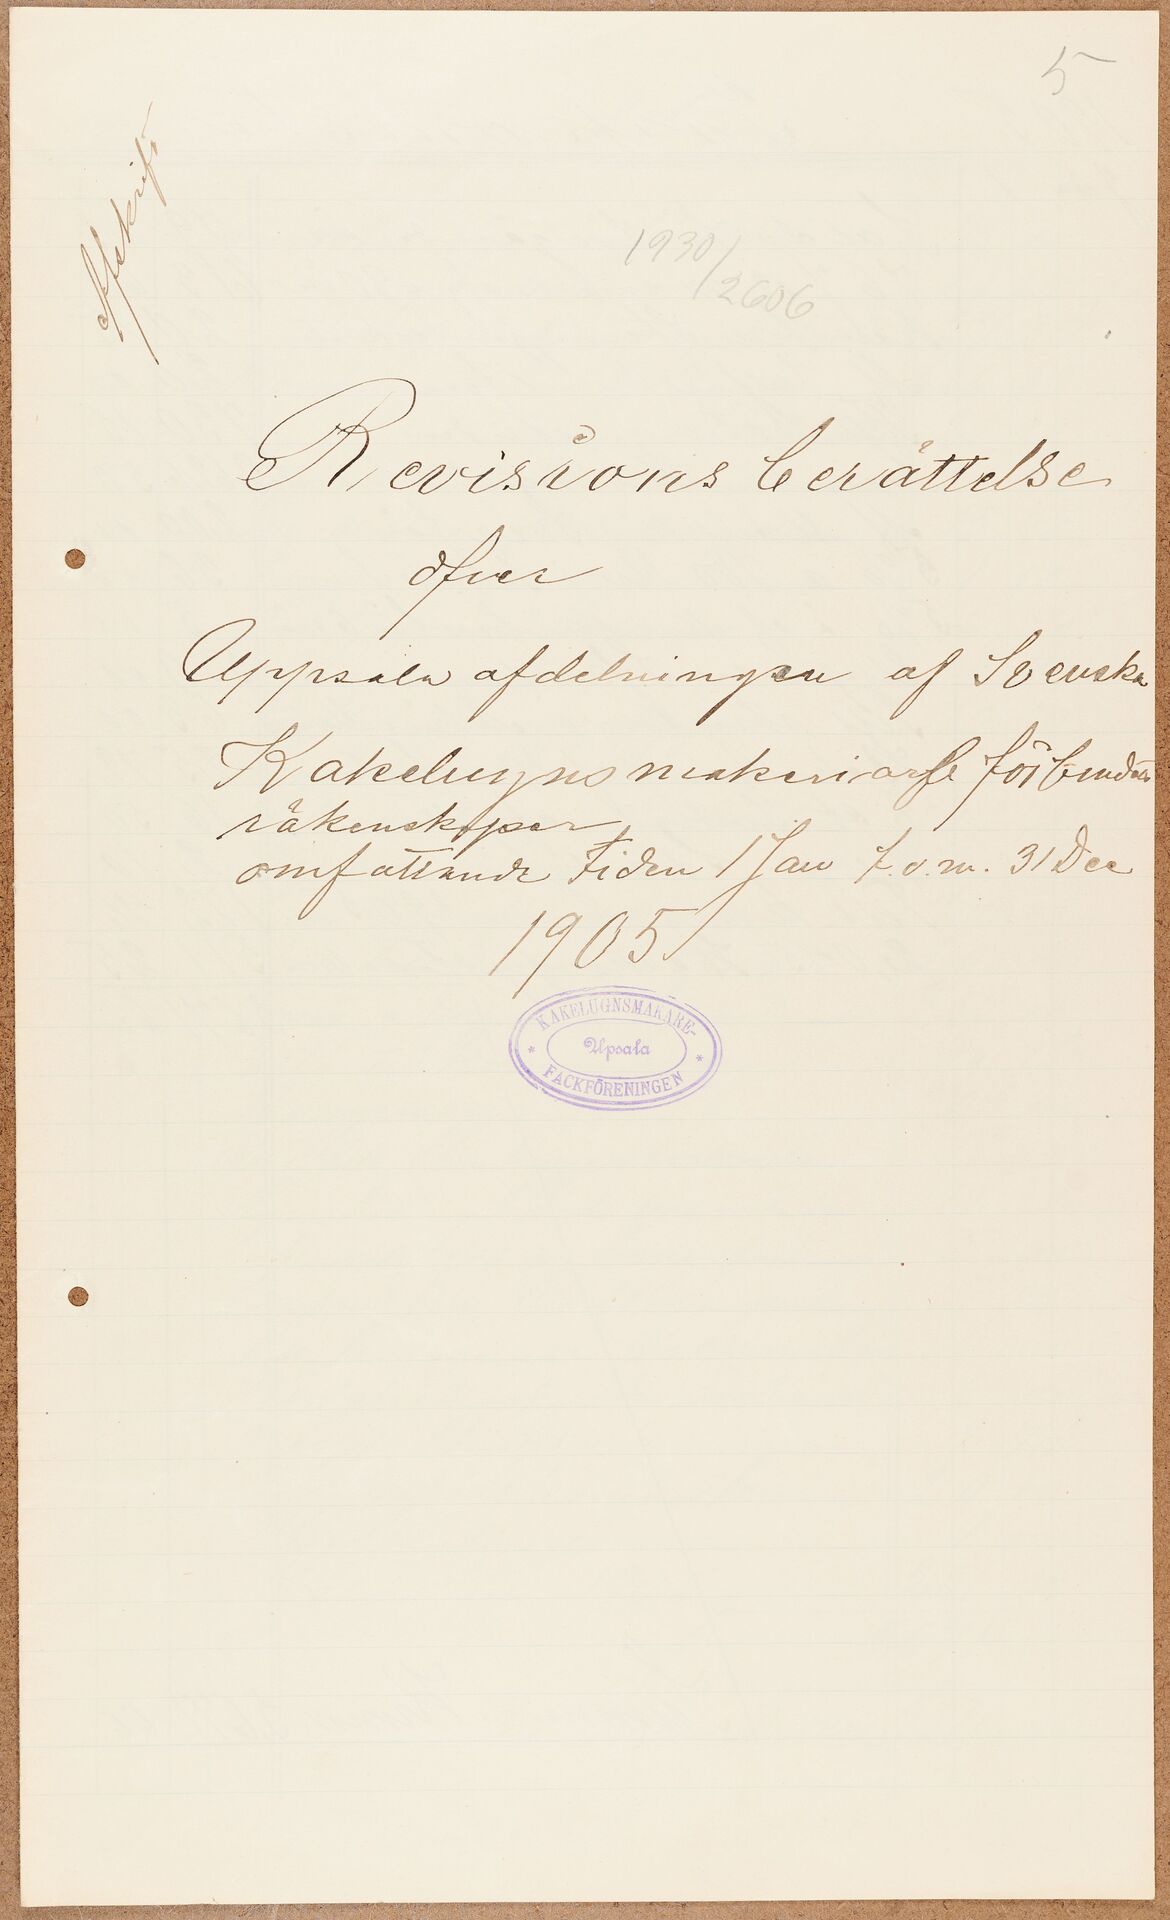 5
Afskrift
1930/2606
Revisionsberättelse
öfver
Uppsala afdelningen af Svenska
Kakelugnsmakeriarb förbundets
räkenskaper
omfattande Tiden 1 Jan t.o.m. 31 Dec
1905
KAKELUGNSMAKARE-
Upsala
FACKFÖRENINGEN